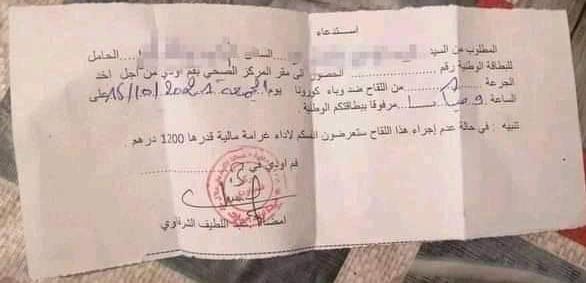 استدعاء
المطلوب من السيد الساكن الحامل
للبطاقة الوطنية رقم .................... الحضور الى مقر المركز الصحي بفم اودي من أجل اخذ
الجرعة من اللقاح ضد وباء كورونا يوم الجمعة 15/10/2021 على
الساعة 9 صباحا مرفوقا ببطاقتكم الوطنية.
تنبيه : في حالة عدم إجراء هذا اللقاح ستعرضون انفسكم لاداء غرامة مالية قدرها 1200 درهم.
فم اودي في
امضاء عبد اللطيف الشرقاوي